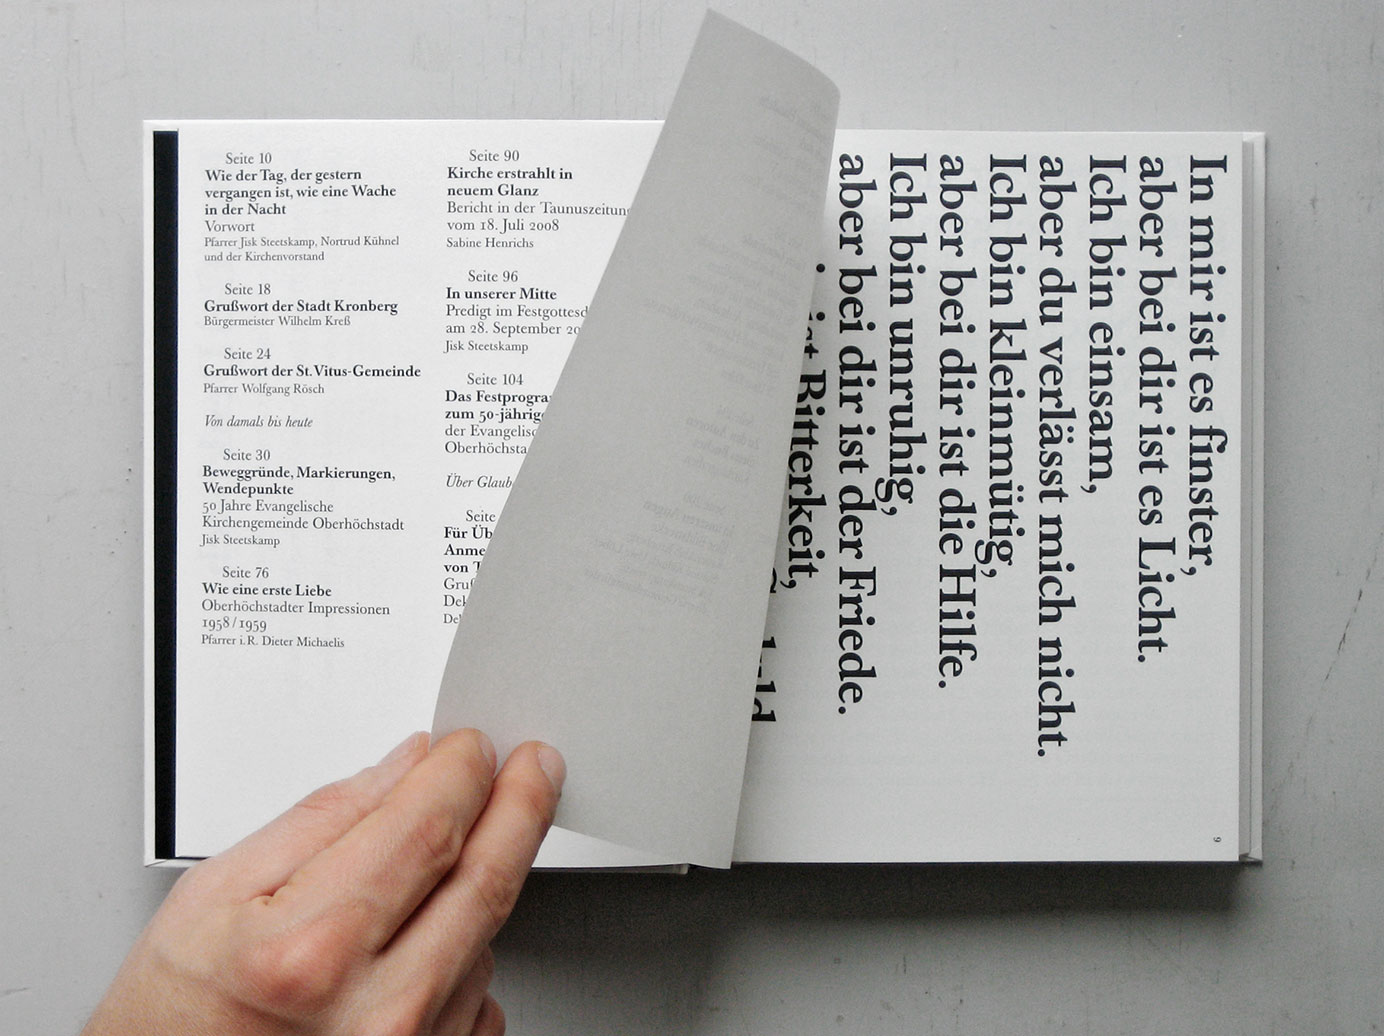 Seite 10
Wie der Tag, der gestern
vergangen ist, wie eine Wache
in der Nacht
Vorwort
Pfarrer Jisk Steetskamp, Nortrud Kühnel
und der Kirchenvorstand
Seite 18
Grußwort der Stadt Kronberg
Bürgermeister Wilhelm Kreß
Seite 24
Grußwort der St. Vitus-Gemeinde
Pfarrer Wolfgang Rösch
Von damals bis heute
Seite 30
Beweggründe, Markierungen,
Wendepunkte
50 Jahre Evangelische
Kirchengemeinde Oberhöchstadt
Jisk Steetskamp
Seite 76
Wie eine erste Liebe
Oberhöchstadter Impressionen
1958/1959
Pfarrer i. R. Dieter Michaelis
Seite 90
Kirche erstrahlt in
neuem Glanz
Bericht in der Taunuszeitung
vom 18. Juli 2008
Sabine Henrichs
Seite 96
In unserer Mitte
Predigt im
am 28. September
Jisk Steetskamp
Seite 104
Das
zum
der
Über
Seite
Für
von
In mir ist es finster,
aber bei dir ist es Licht.
Ich bin einsam,
aber du verlässt mich nicht.
Ich bin kleinmütig,
aber bei dir ist die Hilfe.
Ich bin unruhig,
aber bei dir ist der Friede.
ist Bitterkeit,
9